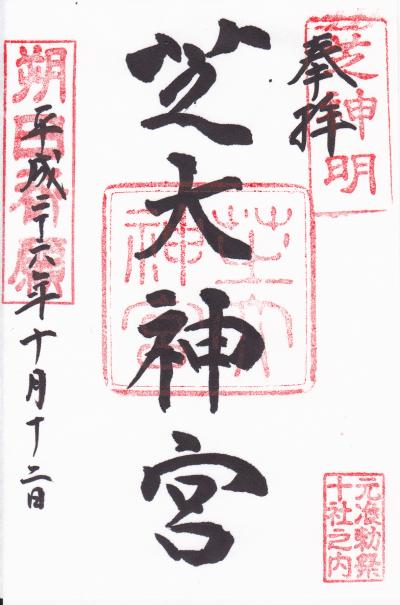 奉拝
芝神明
芝大神宮
芝大
神宮
元准勅祭
十社之内
平成二十六年十月十二日